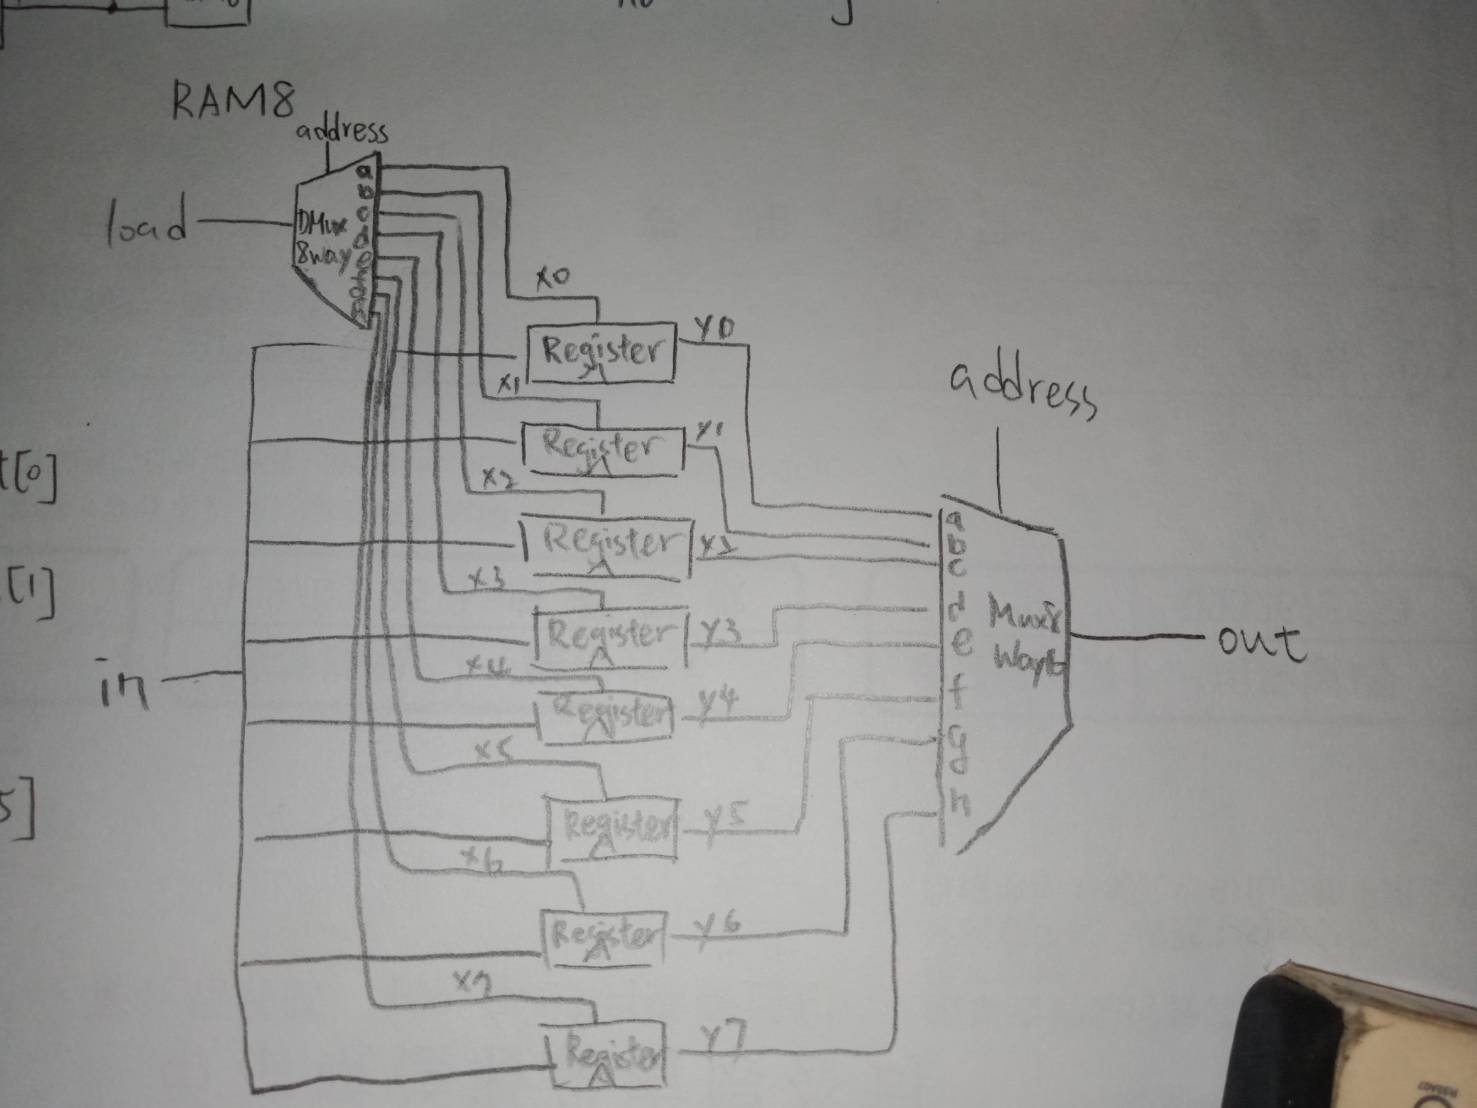 RAM8
address
load
DMux
8way
a
b
c
d
e
f
g
h
x0
Register
y0
x1
Register
y1
x2
Register
y2
x3
Register
y3
x4
Register
y4
x5
Register
y5
x6
Register
y6
x7
Register
y7
in
address
a
b
c
d
e
f
g
h
Mux8
Way16
out
t[0]
[1]
5]